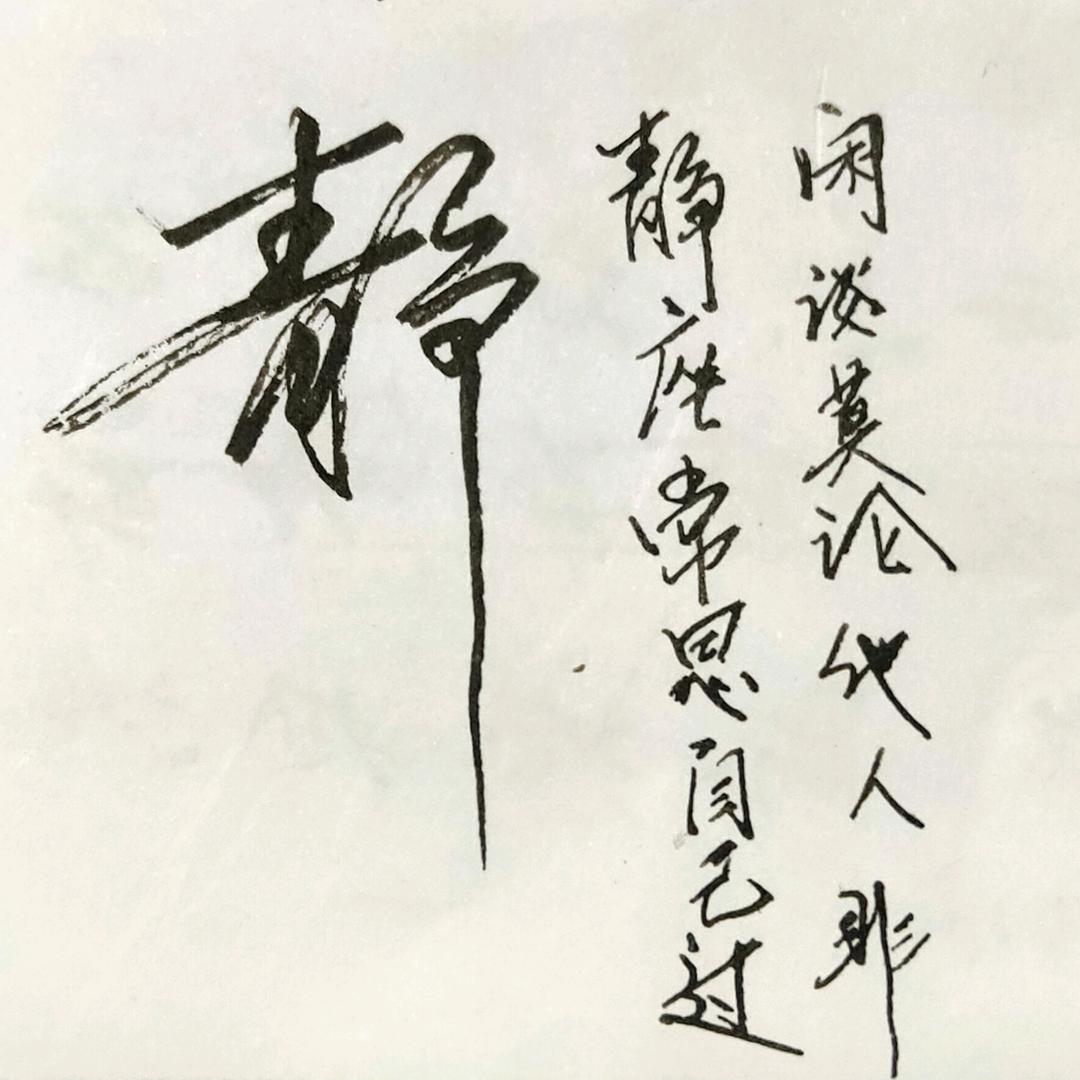 闲谈莫论他人非
静座常思自己过
静